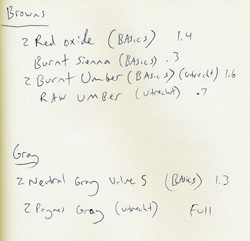 Browns
2 Red oxide (BASics) 1.4
Burnt Sienna (BASics) .3
2 Burnt Umber (BASics) (utrecht) 1.6
RAW UMBER (utrecht) .7
Gray
2 Neutral Gray Value 5 (BASics) 1.3
2 Paynes Gray (utrecht) Full